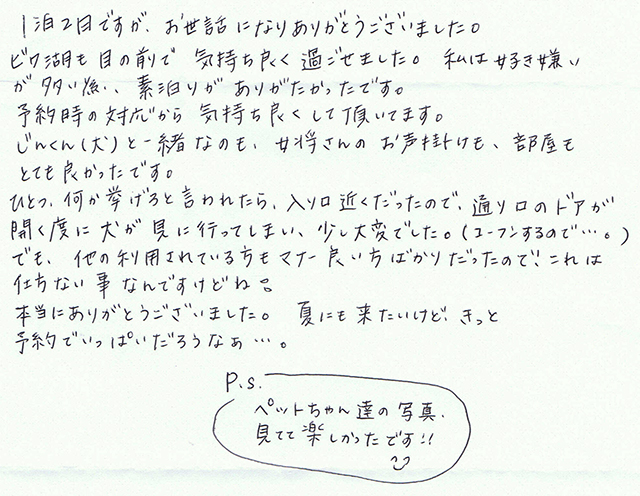 1泊2日ですが、お世話になりありがとうございました。
ビワ湖も目の前で 気持ち良く過ごせました。 私は好き嫌い
が多い為、素泊りがありがたかったです。
予約時の対応から 気持ち良くして頂いてます。
じんくん(犬)と一緒なのも、女将さんの お声掛けも、部屋も
とても良かったです。
ひとつ、何か挙げろと言われたら、入り口近くだったので、通り口のドアが
開く度に犬が見に行ってしまい、少し大変でした。(コーフンするので…。)
でも、他の利用されている方もマナー良い方ばかりだったので、これは
仕方ない事なんですけどね。
本当にありがとうございました。 夏にも来たいけど、きっと
予約でいっぱいだろうなぁ…。
P.s.
ペットちゃん達の写真、
見てて楽しかったです!!